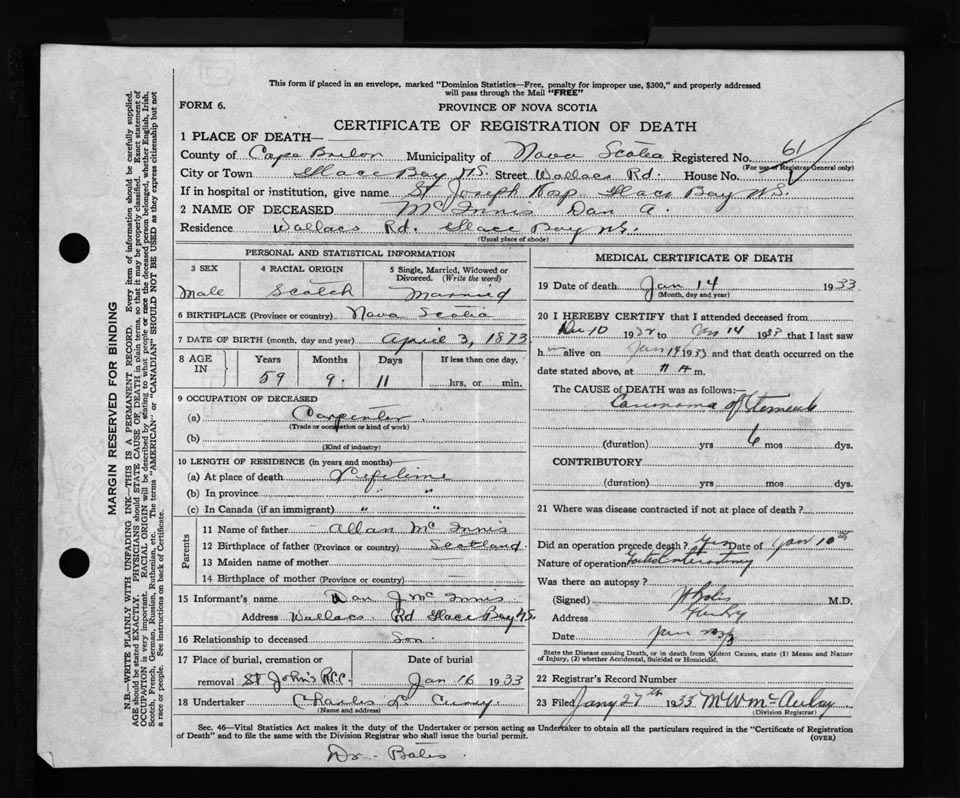 This form if placed in an envelope, marked "Dominion Statistics—Free, penalty for improper use, $300," and properly addressed
will pass through the Mail "FREE"
FORM 6.
PROVINCE OF NOVA SCOTIA
CERTIFICATE OF REGISTRATION OF DEATH
1 PLACE OF DEATH—
County of Cape Breton Municipality of Nova Scotia Registered No. 61
(For use of Registrar General only)
City or Town Glace Bay N.S. Street Wallace Rd. House No.
If in hospital or institution, give name St Joseph Hosp Glace Bay N.S.
2 NAME OF DECEASED McInnis Dan A.
Residence Wallace Rd. Glace Bay N.S.
(Usual place of abode)
PERSONAL AND STATISTICAL INFORMATION
3 SEX
Male
4 RACIAL ORIGIN
Scotch
5 Single, Married, Widowed or
Divorced. (Write the word)
Married
6 BIRTHPLACE (Province or country) Nova Scotia
7 DATE OF BIRTH (month, day and year) April 3, 1873
8 AGE IN
Years 59
Months 9
Days 11
If less than one day,
hrs. or min.
9 OCCUPATION OF DECEASED
(a) Carpenter
(Trade or occupation or kind of work)
(b)
(Kind of industry)
10 LENGTH OF RESIDENCE (in years and months)
(a) At place of death Lifetime
(b) In province " "
(c) In Canada (if an immigrant) " "
Parents
11 Name of father Allan McInnis
12 Birthplace of father (Province or country) Scotland
13 Maiden name of mother
14 Birthplace of mother (Province or country) —
15 Informant's name Dan J. McInnis
Address Wallace Rd Glace Bay N.S.
16 Relationship to deceased Son
17 Place of burial, cremation or
removal St John's R.C.C.
Date of burial
Jan 16 1933
18 Undertaker Charles L. Curry
(Name and address)
MEDICAL CERTIFICATE OF DEATH
19 Date of death Jan 14 1933
(Month, day and year)
20 I HEREBY CERTIFY that I attended deceased from
Dec 10 1932 to Jan 14 1933 that I last saw
him alive on Jan 14 1933 and that death occurred on the
date stated above, at 11 A m.
The CAUSE of DEATH was as follows:
Carcinoma of Stomach
(duration) yrs 6 mos. dys.
CONTRIBUTORY
(duration) yrs mos. dys.
21 Where was disease contracted if not at place of death?
Did an operation precede death? Yes Date of Jan 10th
Nature of operation Gastro Enterostomy
Was there an autopsy?
(Signed) M.D.
Address
Date Jan
State the Disease causing Death, or in death from Violent Causes, state (1) Means and Nature
of Injury, (2) whether Accidental, Suicidal or Homicidal.
22 Registrar's Record Number
23 Filed Jany 27th 1933 M W McAulay
(Division Registrar)
Sec. 46—Vital Statistics Act makes it the duty of the Undertaker or person acting as Undertaker to obtain all the particulars required in the "Certificate of Registration
of Death" and to file the same with the Division Registrar who shall issue the burial permit.
(OVER)
Dr. Bates
MARGIN RESERVED FOR BINDING
N.B.—WRITE PLAINLY WITH UNFADING INK—THIS IS A PERMANENT RECORD. Every item of information should be carefully supplied.
AGE should be stated EXACTLY. PHYSICIANS should STATE CAUSE OF DEATH in plain terms, so that it may be properly classified. Exact statement of
OCCUPATION is very important. RACIAL ORIGIN will be described by stating to what people or race the deceased person belonged, whether English, Irish,
Scotch, French, German, Russian, Ruthenian, etc. The terms "AMERICAN" or "CANADIAN" SHOULD NOT BE USED as they express citizenship but not
a race or people. See instructions on back of Certificate.